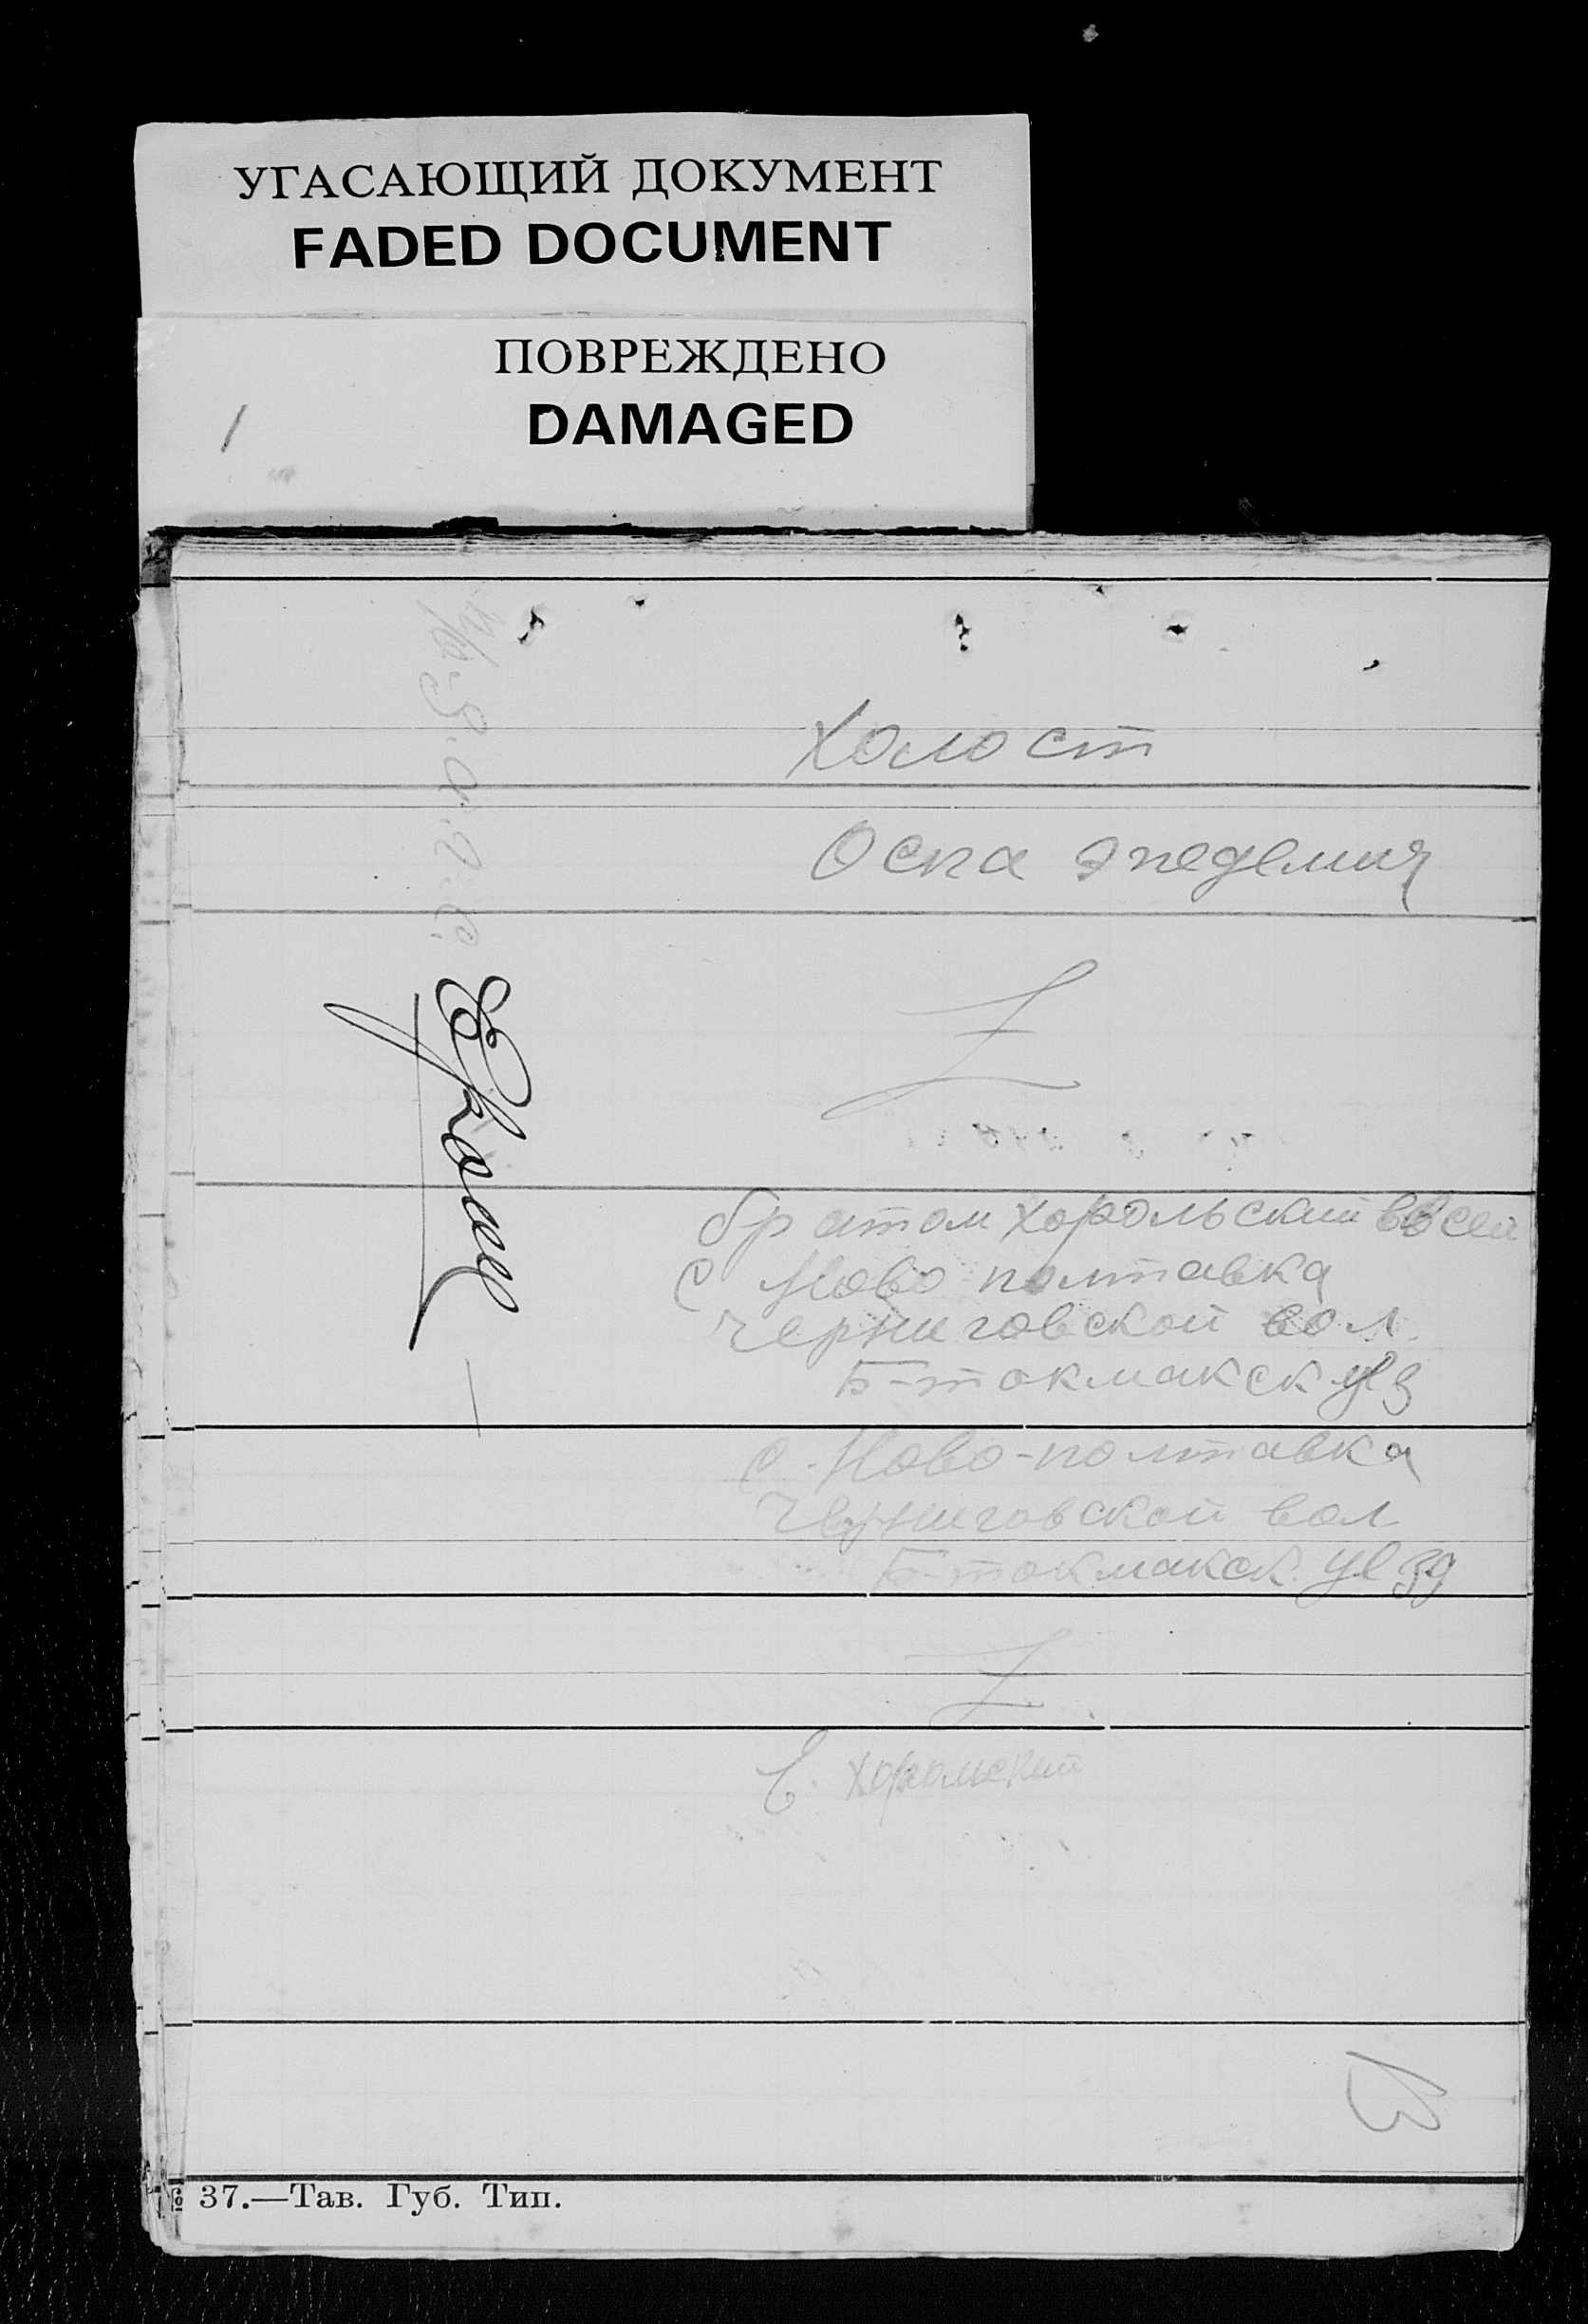 УГАСАЮЩИЙ ДОКУМЕНТ
FADED DOCUMENT
ПОВРЕЖДЕНО
DAMAGED
Холост
Оспа эпедемия
Z
братом Хорольский
с Ново полтавка
Черниговской вол.
Б-токмакск уез
с. Ново-полтавка
Черниговской вол
Б-токмакск. уезд
Z
Е. Хорольский
13
37.—Тав. Губ. Тип.